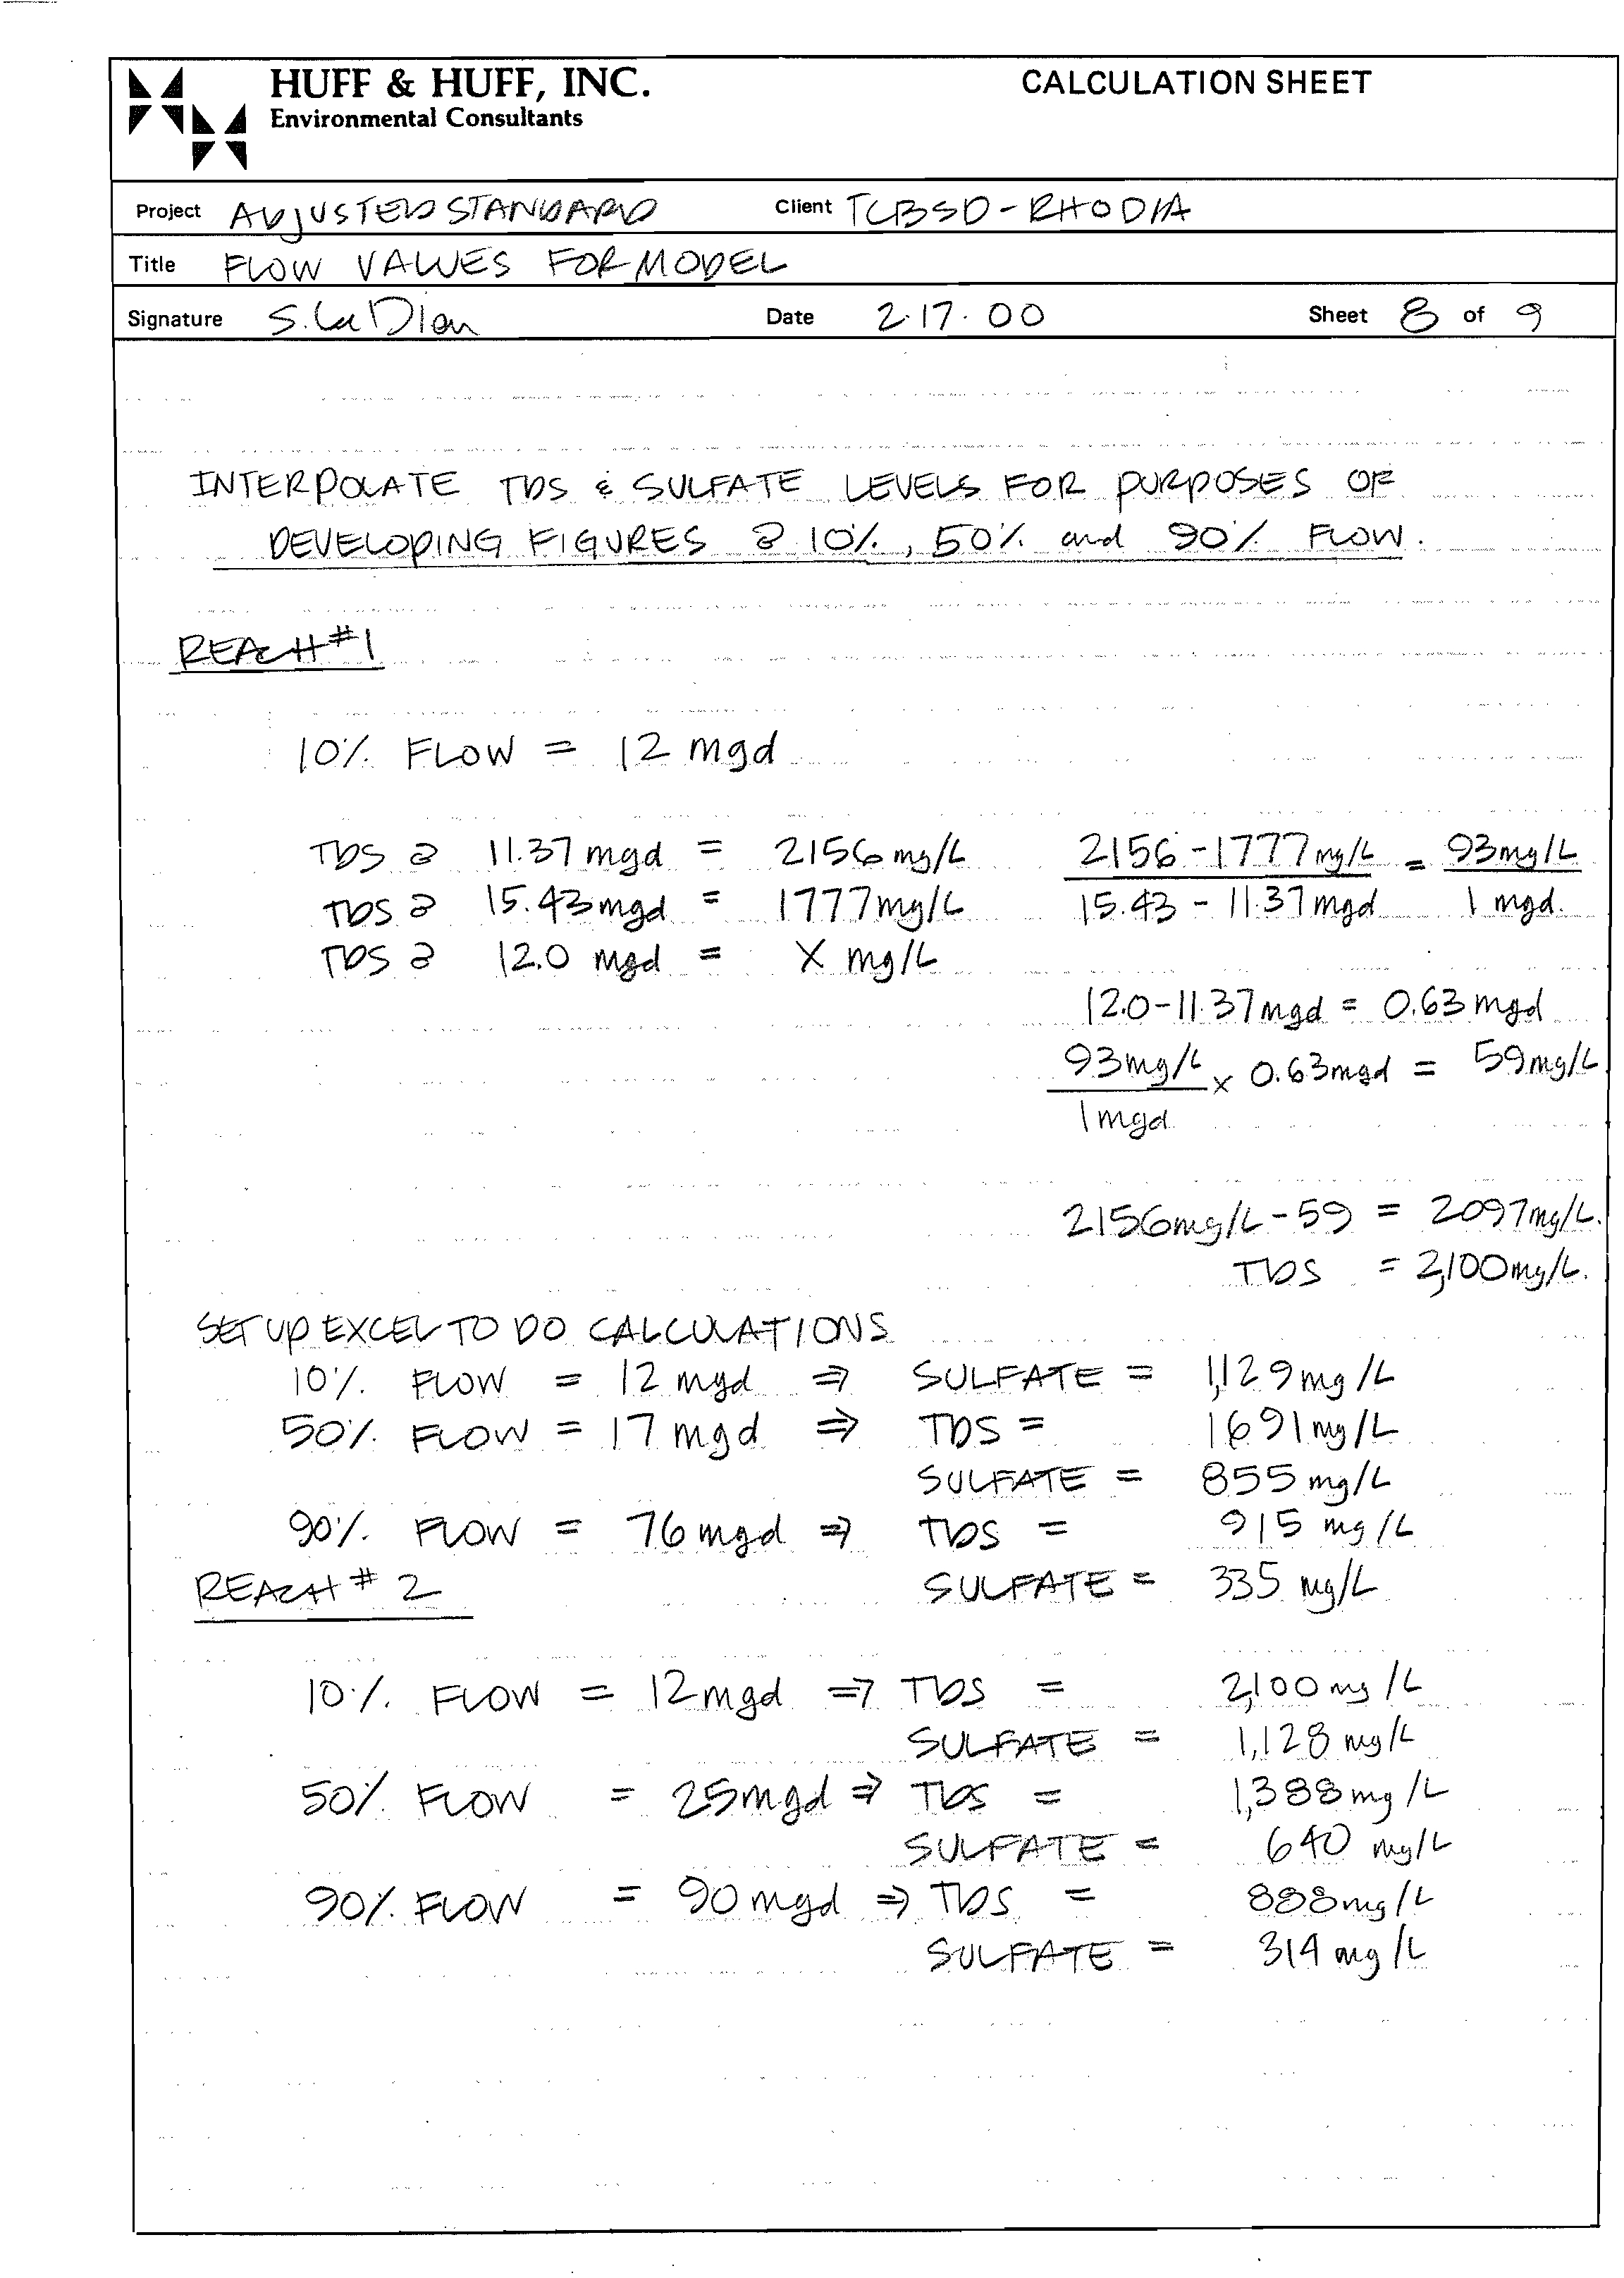 HUFF & HUFF, INC. CALCULATION SHEET
Environmental Consultants
Project ADJUSTED STANDARD Client TCBSD-RHODIA
Title FLOW VALUES FOR MODEL
Signature S. LaDien Date 2.17.00 Sheet 8 of 9
INTERPOLATE TDS & SULFATE LEVELS FOR PURPOSES OF
DEVELOPING FIGURES @ 10%, 50% and 90% FLOW.
REACH #1
10% FLOW = 12 mgd
TDS @ 11.37 mgd = 2156 mg/L 2156 - 1777 mg/L = 93 mg/L
TDS @ 15.43 mgd = 1777 mg/L 15.43 - 11.37 mgd 1 mgd.
TDS @ 12.0 mgd = X mg/L
12.0 - 11.37 mgd = 0.63 mgd
93 mg/L x 0.63 mgd = 59 mg/L
1 mgd
2156 mg/L - 59 = 2097 mg/L.
TDS = 2,100 mg/L.
SET UP EXCEL TO DO CALCULATIONS
10% FLOW = 12 mgd ⇒ SULFATE = 1,129 mg/L
50% FLOW = 17 mgd ⇒ TDS = 1691 mg/L
SULFATE = 855 mg/L
90% FLOW = 76 mgd ⇒ TDS = 915 mg/L
REACH # 2 SULFATE = 335 mg/L
10% FLOW = 12 mgd ⇒ TDS = 2,100 mg/L
SULFATE = 1,128 mg/L
50% FLOW = 25 mgd ⇒ TDS = 1,388 mg/L
SULFATE = 640 mg/L
90% FLOW = 90 mgd ⇒ TDS = 888 mg/L
SULFATE = 314 mg/L